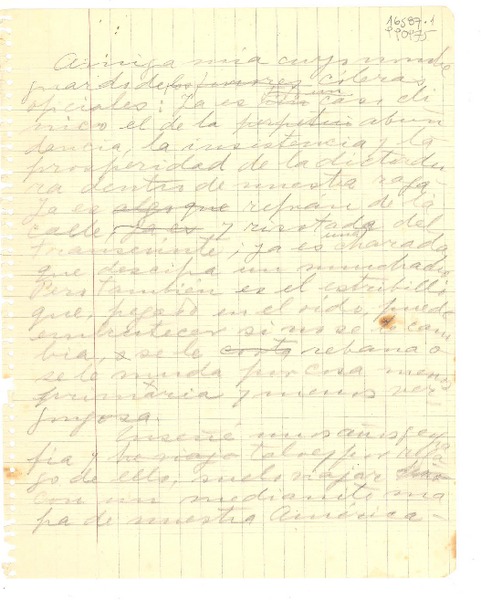 16587.1
Amiga mía cuyo nombre
guardo de los furores cóleras
oficiales: Ya es un caso clí
nico el de la perpetua abun
dancia, la insistencia y la
prosperidad de la dictadu
ra dentro de nuestra raza.
Ya es algo que refran de la
calle, ya es y risotada del
transeúnte; ya es una charada
que descifa un muchacho
Pero también es el estribillo
que, pegado en el oído, puede
embrutecer si no se le cam
bia, o se le corta rebana o
se le muda por cosa menos
primaria y menos ver
gonzosa.
Enseñé unos años geogra
fía y tal vez por
de ello, suelo viajar
con un mediante ma
pa de nuestra América-